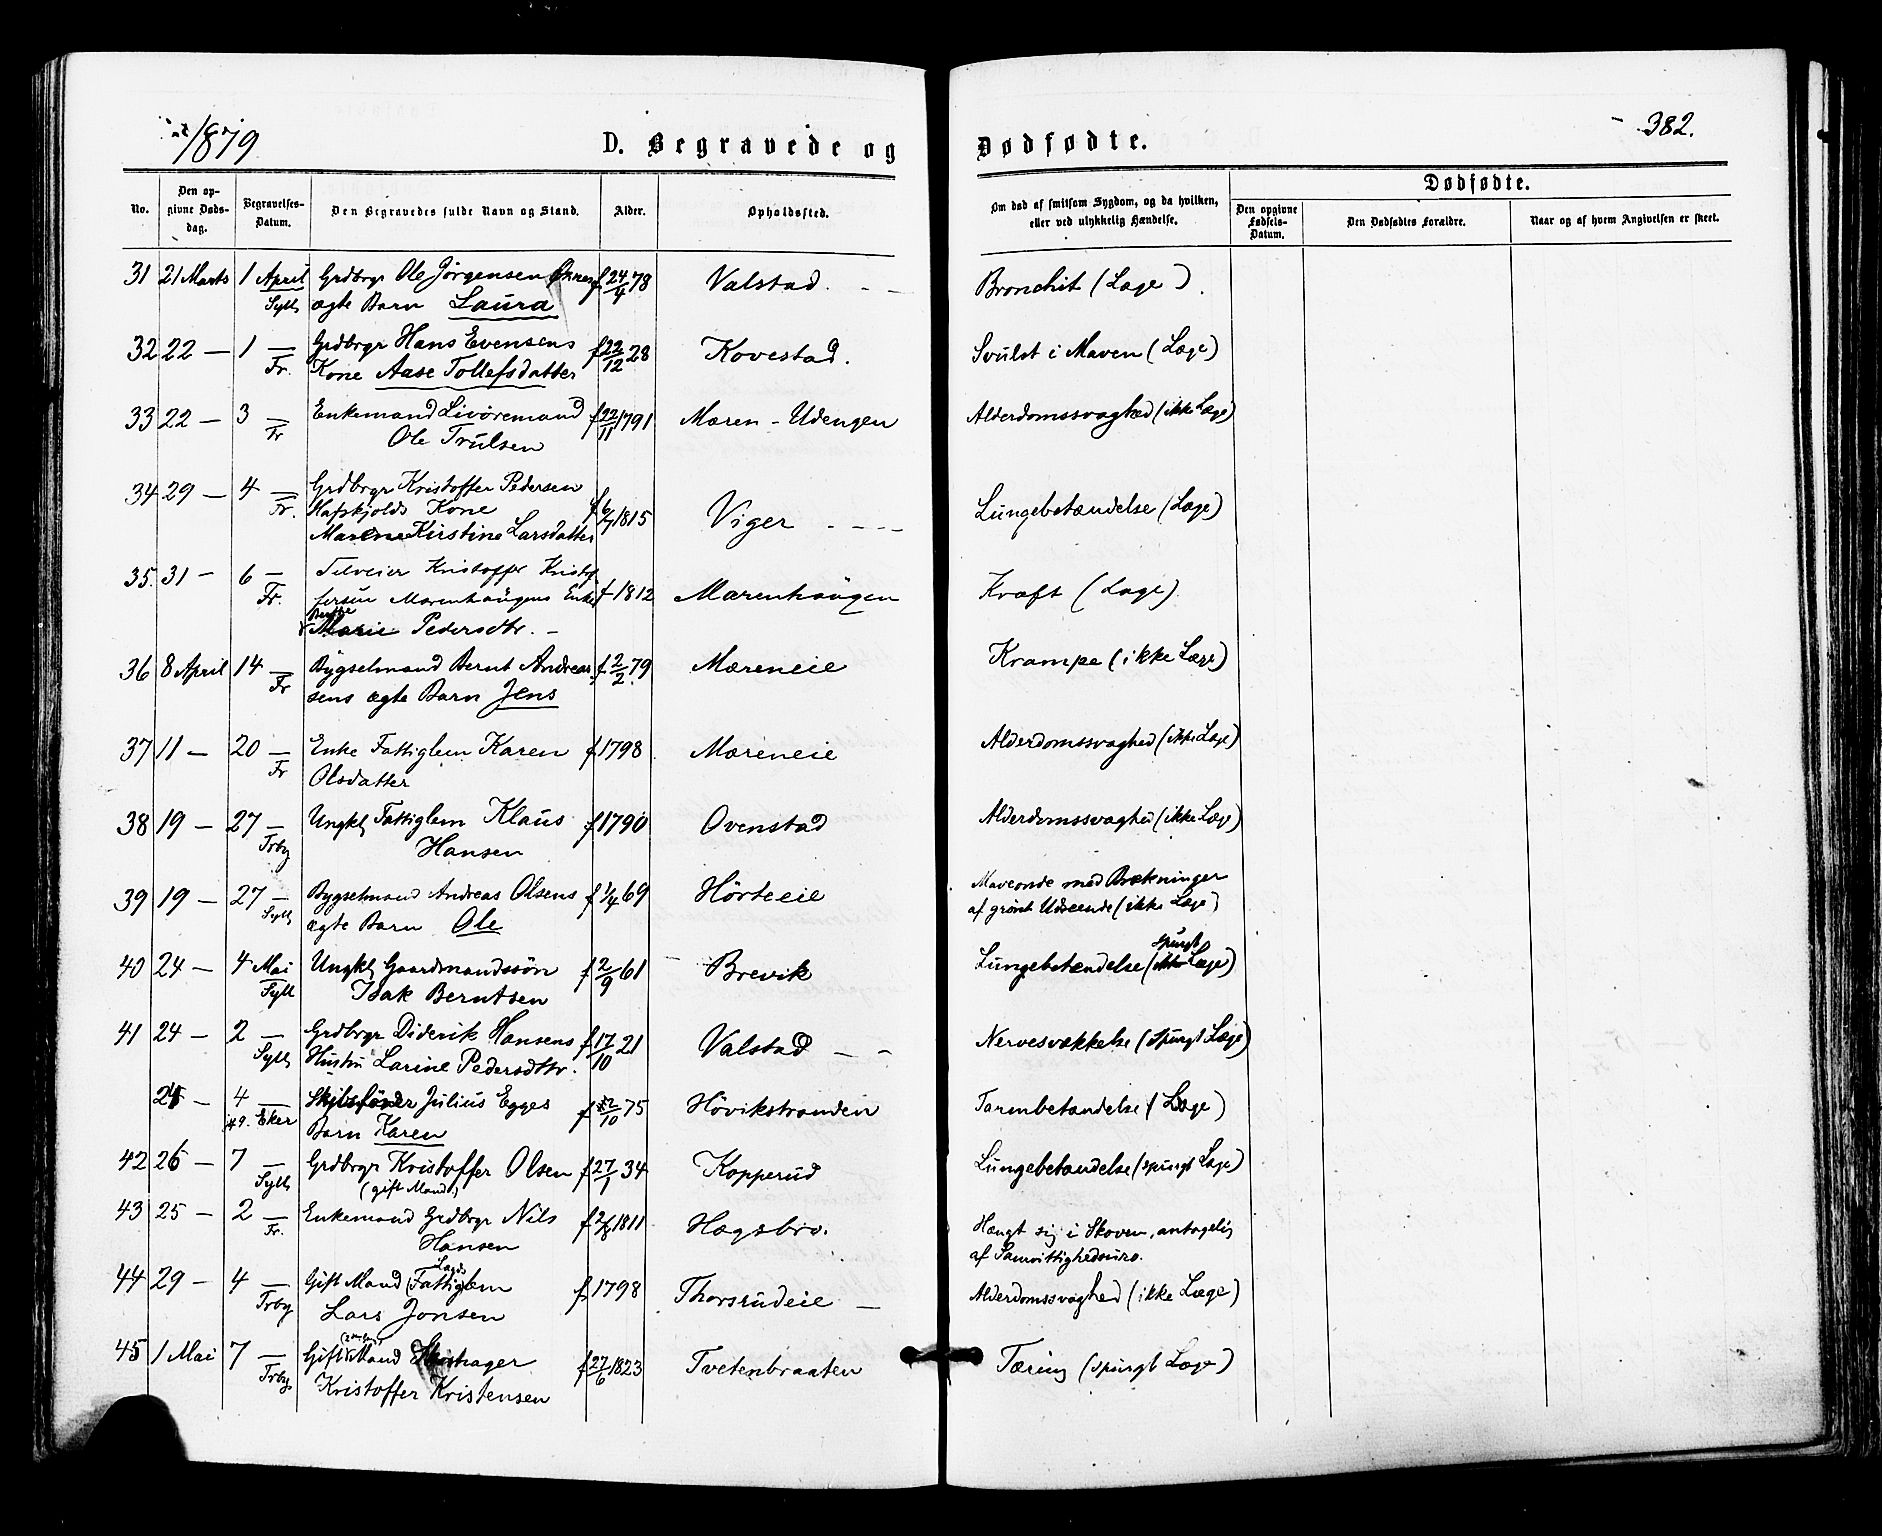 1879
D. Begravede og Dødfødte.
382.
No.
Den opgivne Dødsdag.
Begravelses-Datum.
Den Begravedes fulde Navn og Stand.
Alder.
Opholdssted.
Om død af smitsom Sygdom, og da hvilken, eller ved ulykkelig Hændelse.
Dødfødte.
Den opgivne Fødsels-Datum.
Den Dødfødtes Forældre.
Naar og af hvem Angivelsen er skeet.
31 21 Marts 1 April Grdbrgr Ole Jörgensen f 24/4 78 Valstad. Bronchit (Læge)
Sylli ægte Barn Laura
32 22 — 1 — Grdbrgr Hans Evensens f 22/12 28 Kovestad. Svulst i Maven (Læge)
Fr. Kone Aase Tollefsdatter
33 22 — 3 — Enkemand Livöremand f 22/11 1791 Mæren - Udengen Alderdomssvaghed (ikke Læge)
Fr Ole Trulsen
34 29 — 4 — Grdbrgr Kristoffer Pedersen
Fr. Hafskjolds Kone f 6/7 1815 Viger Lungebetændelse (Læge)
Marene Kirstine Larsdatter
35. 31 — 6 — Kristoffer Kristof
Fr. fersen Mærenhaugens Enke f 1812 Mærenhaugen Kræft (Læge).
Marie Pedersdtr. —
36 8 April 14 — Bygselmand Bernt Andrea- f 2/2 79 Mæreneie Krampe (ikke Læge)
Fr sens ægte Barn Jens
37 11 — 20 — Enke Fattiglem Karen f 1798 Mæreneie Alderdomssvaghed (ikke Læge)
Fr Olsdatter
38 19 — 27 — Ungkl Fattiglem Klaus f 1790 Ovenstad Alderdomssvaghed (ikke Læge)
Trby Hansen
39 19 — 27 — Bygselmand Andreas Olsens f 1/4 69 Hörteeie Maveonde med Brækninger
Sylli ægte Barn Ole af grönt Udseende (ikke Læge)
40 24 — 4 Mai Ungkl Gaardmandssön f 2/9 61 Brevik Lungebetændelse (spurgt Læge)
Sylli Isak Berntsen
41 24 — 2 — Grdbrgr Diderik Hansens f 17/10 21 Valstad — Nervesvækkelse (spurgt Læge)
Sylli Hustru Larine Pedersdttr.
24 — 4 — Skibsförer Julius Egges f 12/10 75 Hövikstranden Tarmbetændelse (Læge)
Eker Barn Karen
42 26 — 7 — Grdbrgr Kristoffer Olsen f 27/1 34 Kopperud Lungebetændelse (spurgt Læge)
Sylli (gift Mand)
43 25 — 2 — Enkemand Grdbrgr Nils f 2/8 1811 Hægsbro. Hængt sig i Skoven, antagelig
Fr. Hansen af Samvittighedsuro.
44 29 — 4 — Gift Mand (Lægds Fattiglem f 1798 Thorsrudeie — Alderdomssvaghed (ikke Læge)
Trby Lars Jonsen
45 1 Mai 7 — Gift Mand f 27/6 1823 Tvetenbraaten Tæring (spurgt Læge)
Trby Kristoffer Kristensen